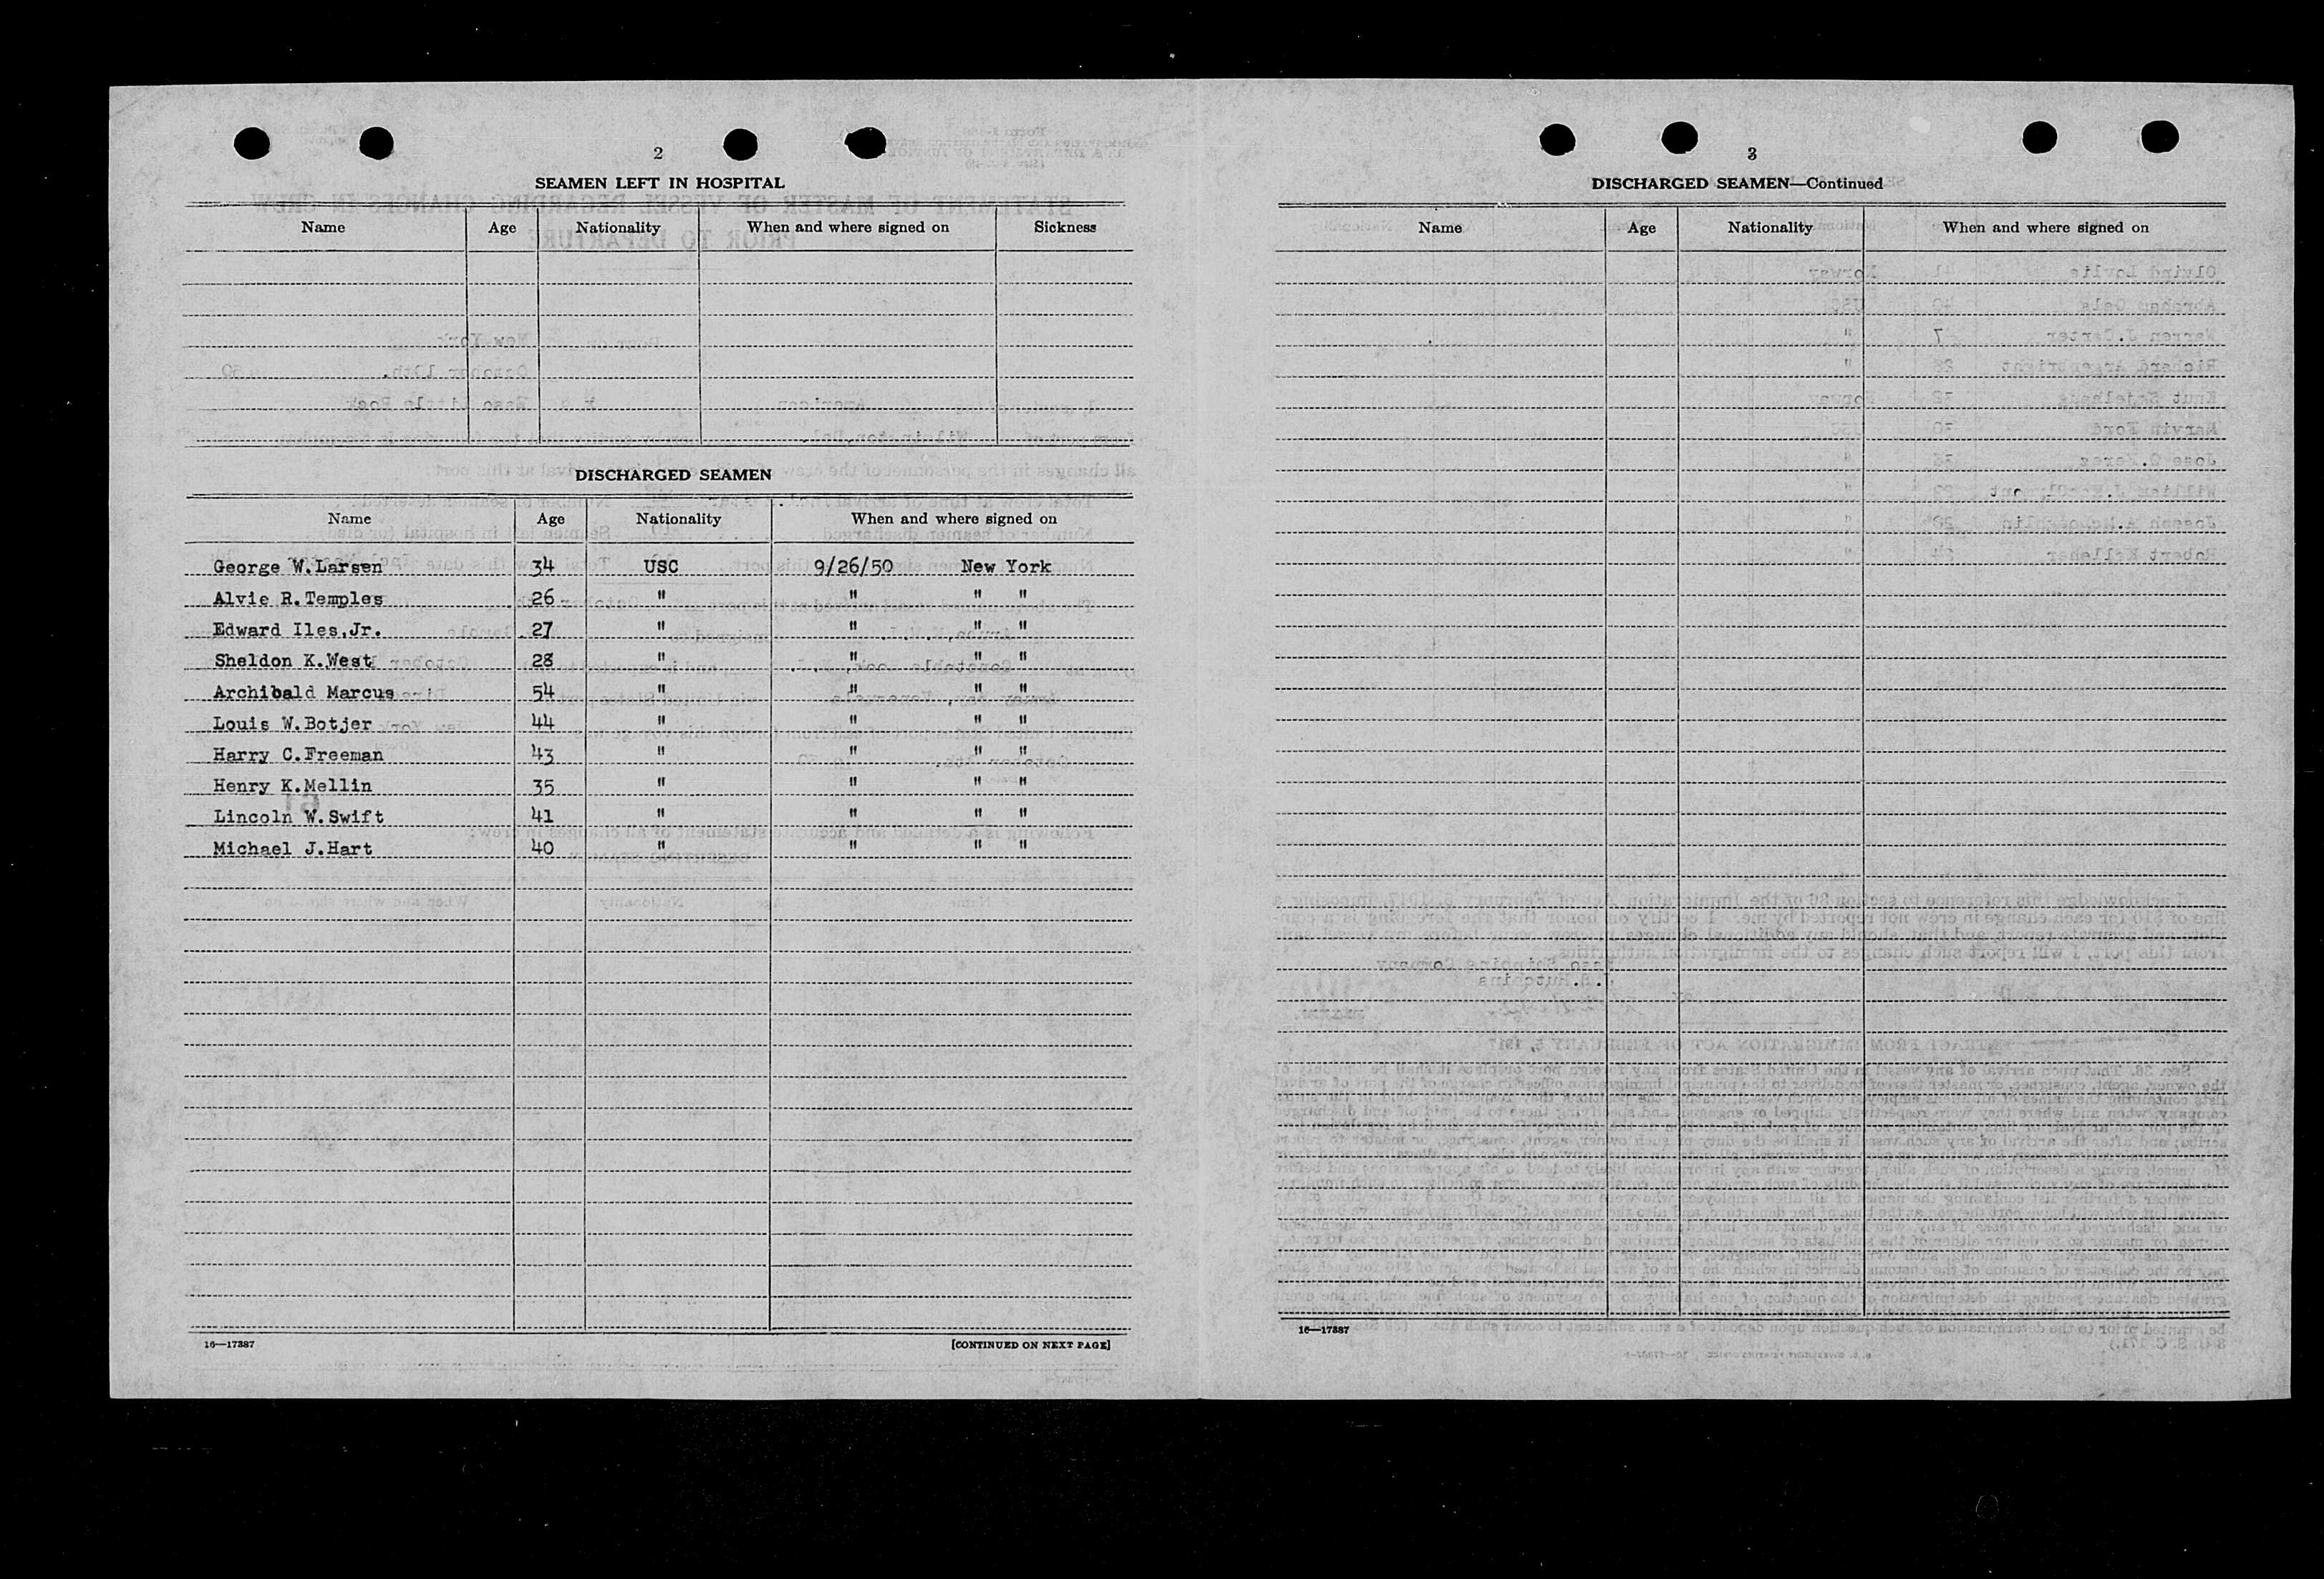 2
SEAMEN LEFT IN HOSPITAL
Name Age Nationality When and where signed on Sickness
DISCHARGED SEAMEN
Name Age Nationality When and where signed on
George W.Larsen 34 USC 9/26/50 New York
Alvie R.Temples 26 " " " "
Edward Iles,Jr. 27 " " " "
Sheldon K.West 28 " " " "
Archibald Marcus 54 " " " "
Louis W.Botjer 44 " " " "
Harry C.Freeman 43 " " " "
Henry K.Mellin 35 " " " "
Lincoln W.Swift 41 " " " "
Michael J.Hart 40 " " " "
16—17387 [CONTINUED ON NEXT PAGE]
3
DISCHARGED SEAMEN—Continued
Name Age Nationality When and where signed on
16—17387